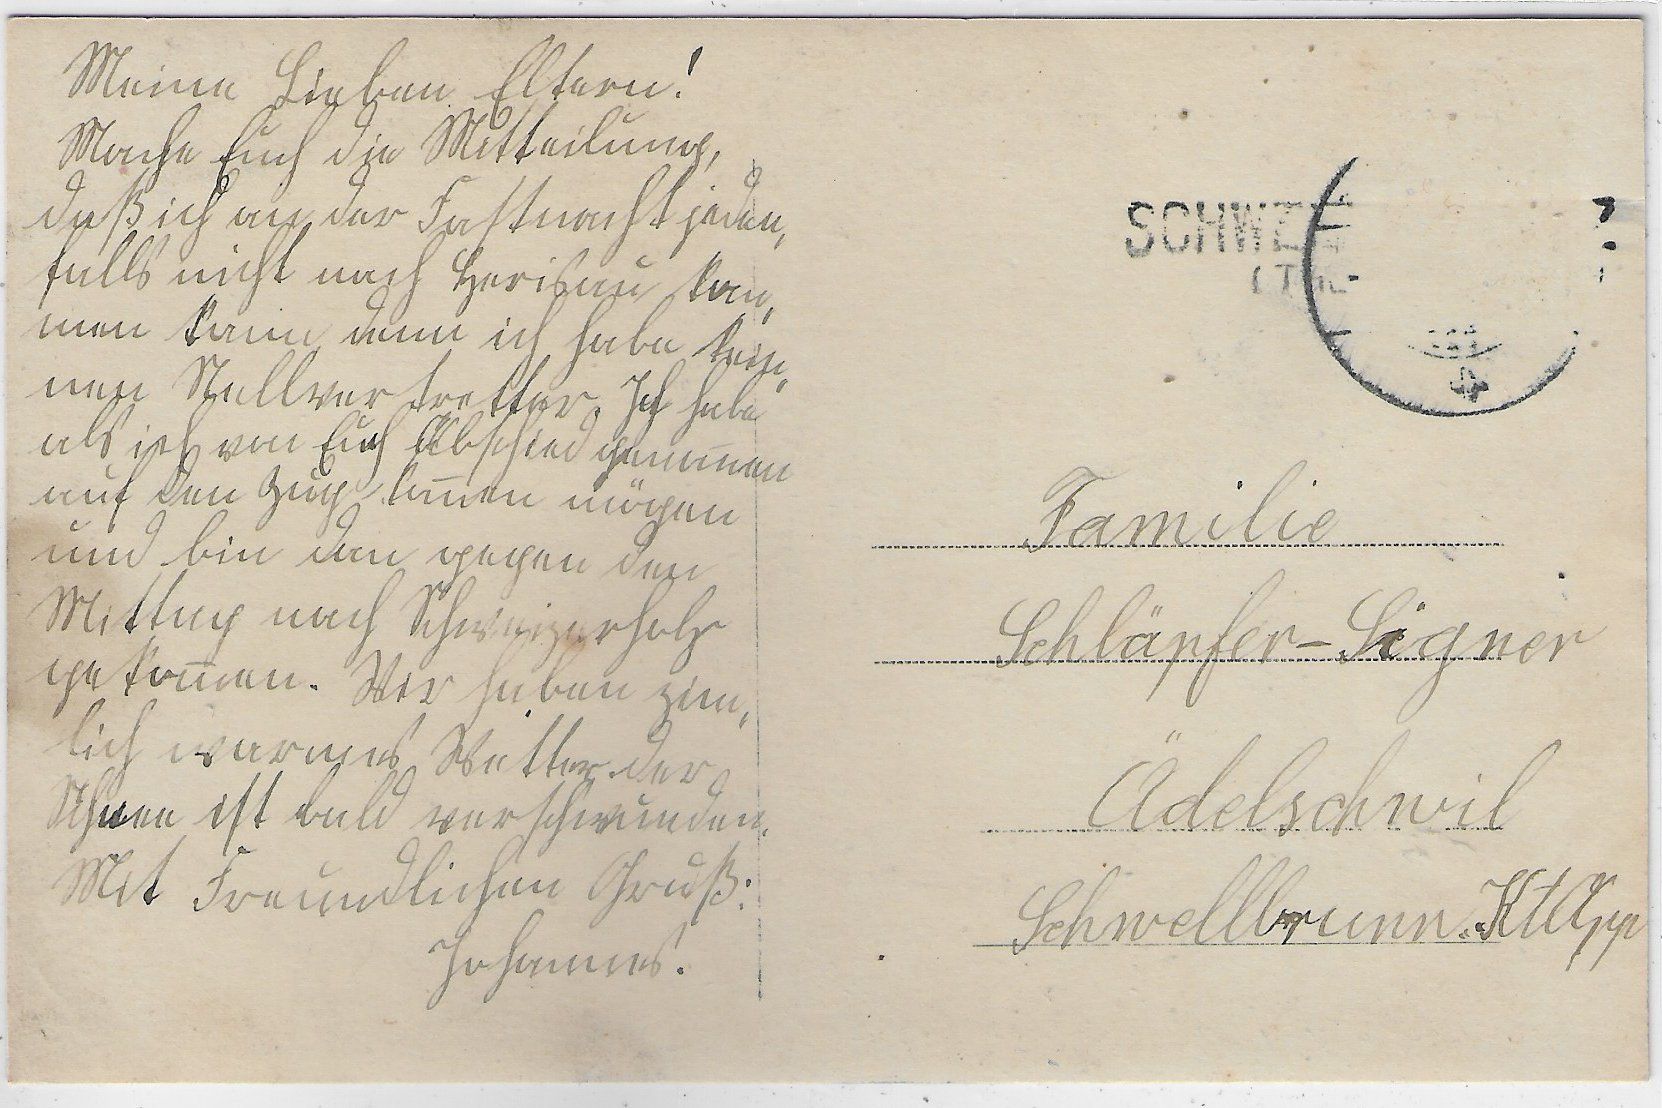 Meine Lieben Eltern!
Mache Euch die Mitteilung,
daß ich an der Fastnacht jeden,
falls nicht nach Herisau kom,
men kann denn ich habe kein,
nen Stellvertretter. Ich habe
als ich von Euch Abschied genom̅en
auf den Zug kom̅en mögen
und bin dan gegen den
Mittag nach Schweizerholz
gekom̅en. Wir haben zim,
lich warmes Wetter der
Schnee ist bald verschwunden.
Mit Freundlichen Gruß:
Johannes.
SCHWEI
(Thu
4
Familie
Schläpfer-Signer
Ädelschwil
Schwellbrunn. Kt App